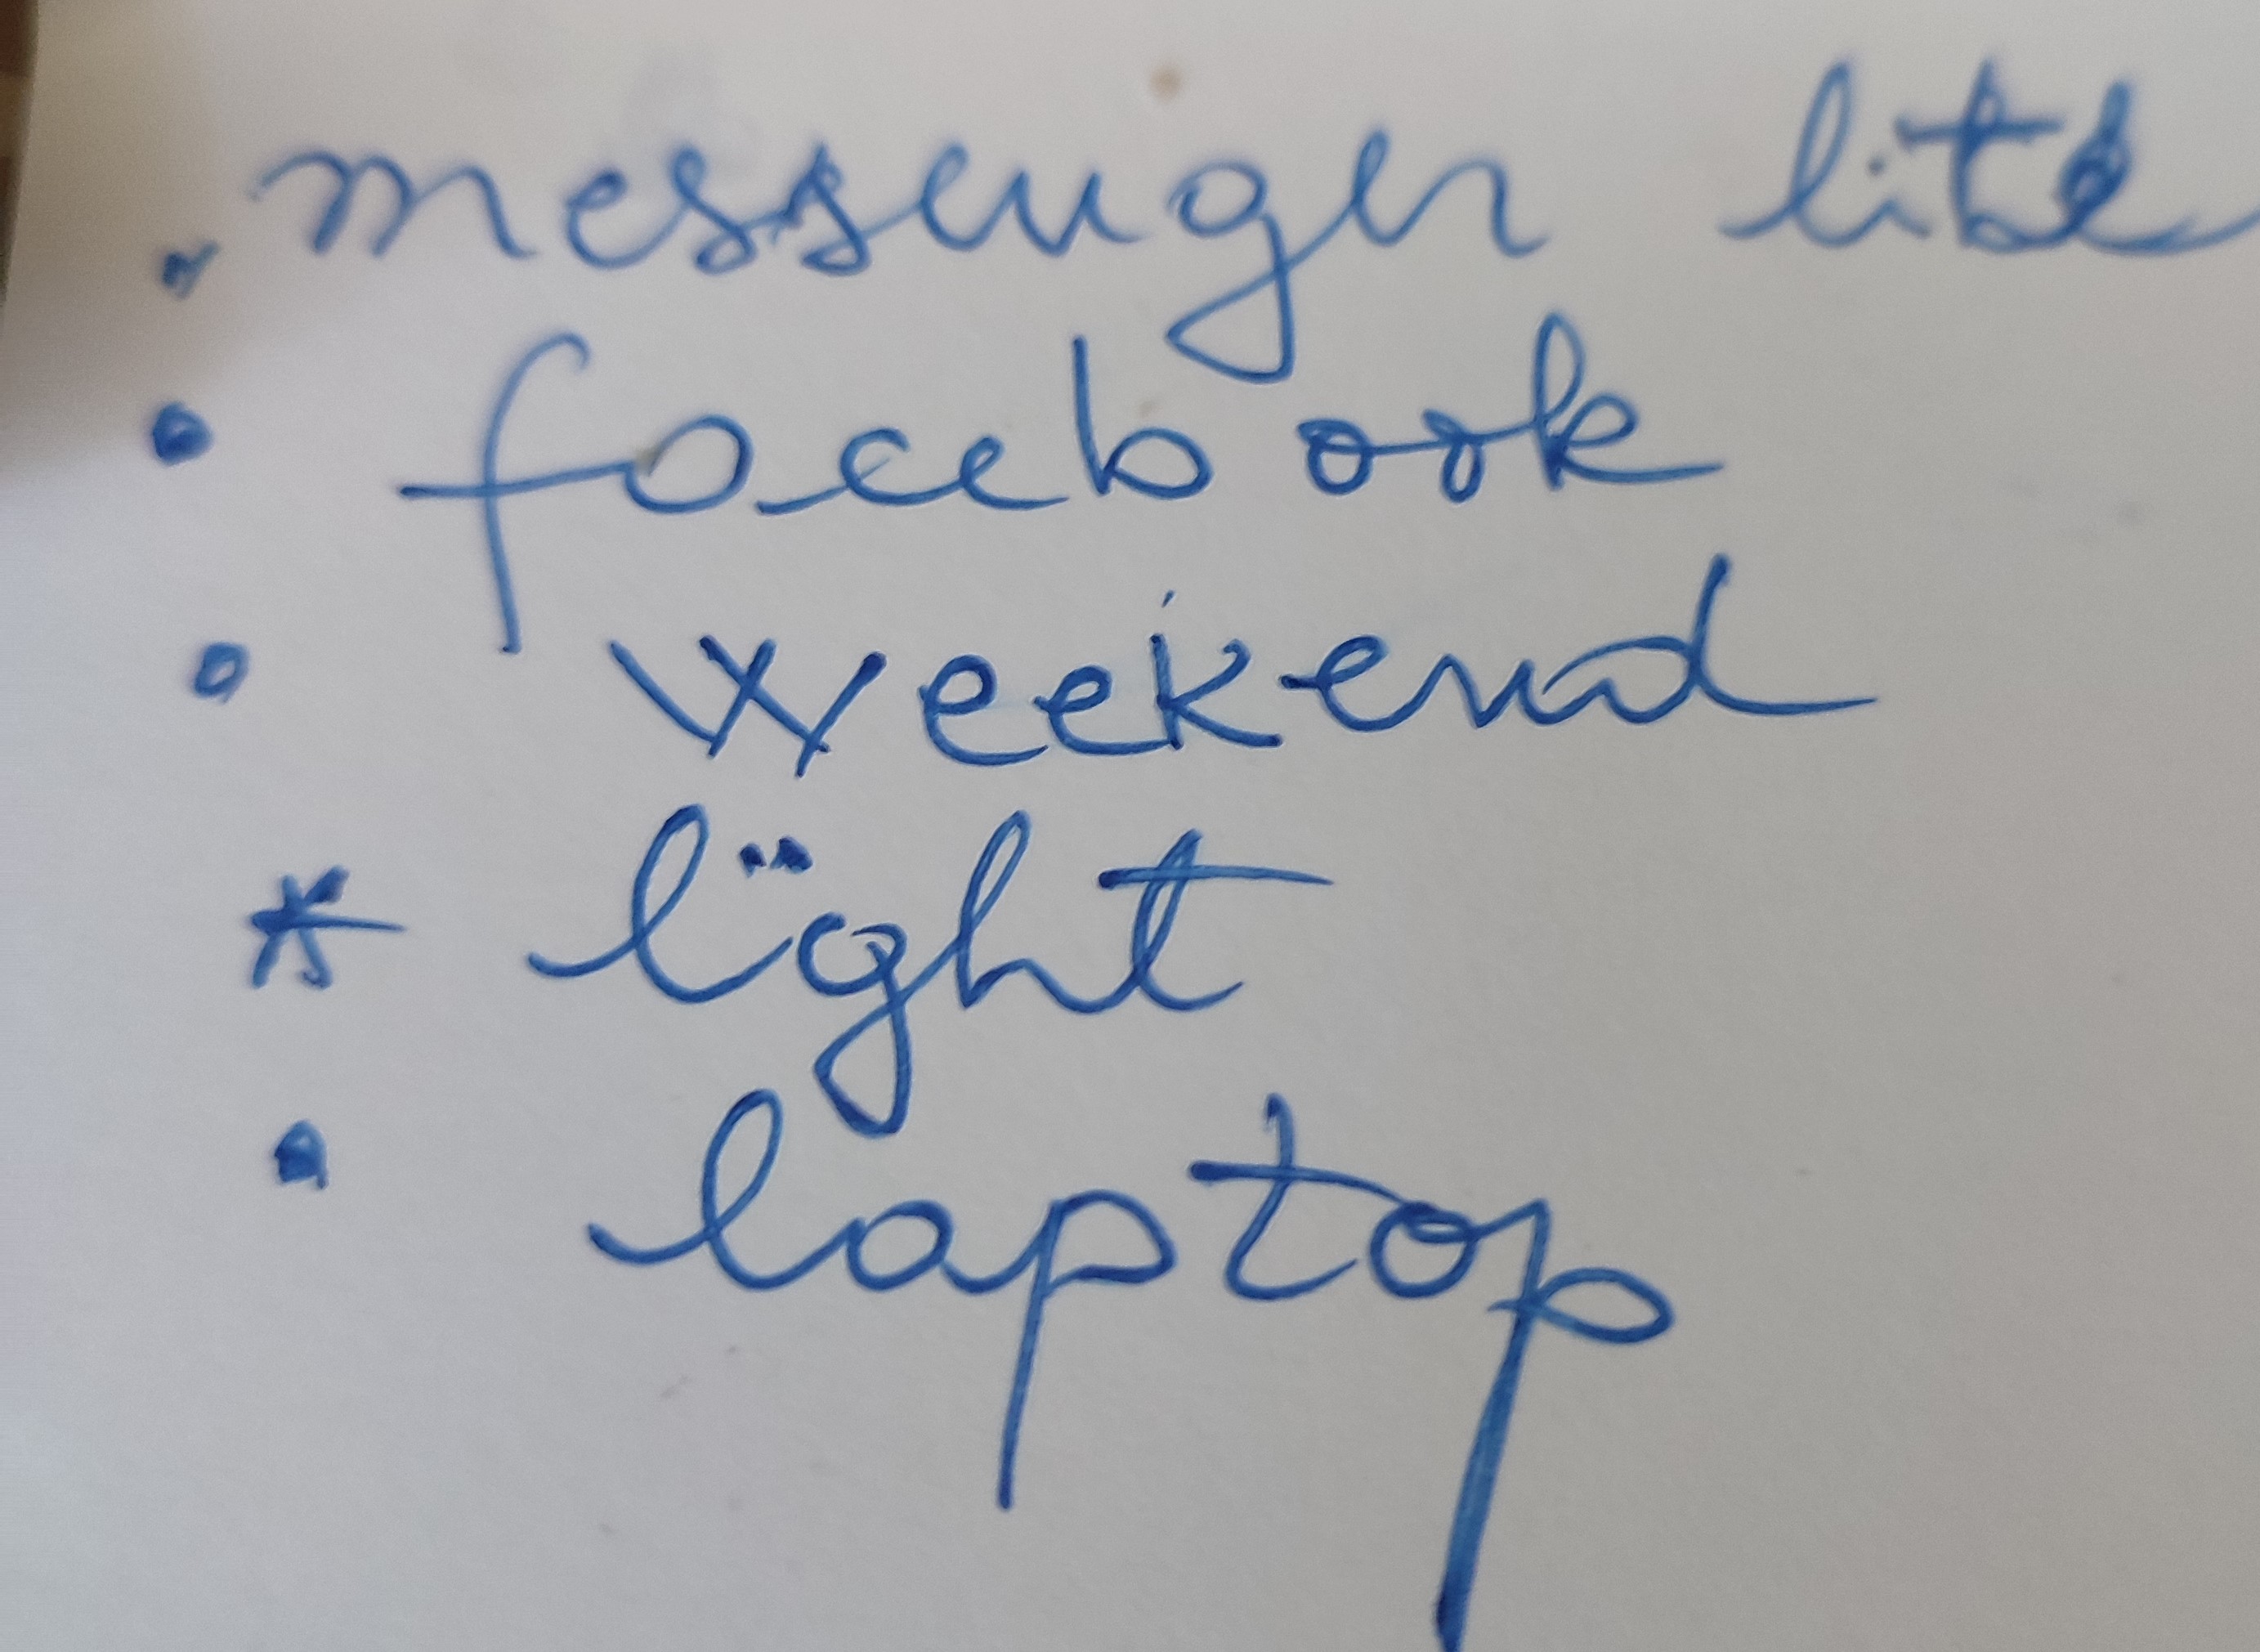 • messenger lite
• facebook
• weekend
* light
• laptop